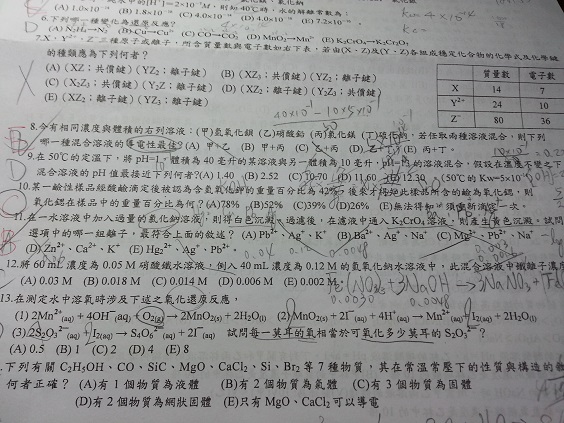 6.下列哪一種變化為還原反應?
(A) N₂H₄→N₂ (B) Cu→Cu²⁺ (C) CO→CO₂ (D) MnO₂→Mn²⁺ (E) K₂CrO₄→K₂Cr₂O₇
7.X、Y²⁺、Z⁻三種原子或離子,所含質量數與電子數如右下表,若由(X、Z)及(Y、Z)各組成穩定化合物的化學式及化學鍵
的種類應為下列何者?
(A) (XZ;共價鍵) (YZ₂;離子鍵) (B) (XZ₃;共價鍵) (YZ;離子鍵)
(C) (X₂Z₃;共價鍵) (YZ;離子鍵) (D) (XZ₂;共價鍵) (YZ₃;離子鍵)
(E) (XZ₂;離子鍵) (YZ₃;離子鍵)
質量數 電子數
X 14 7
Y²⁺ 24 10
Z⁻ 80 36
8.今有相同濃度與體積的右列溶液:(甲)氫氧化鋇 (乙)硝酸鉛 (丙)氯化鎂 (丁)硫化鈉,若任取兩種溶液混合,則下列
哪一種混合溶液的導電性最佳?(A) 甲、乙 (B) 甲+丙 (C) 乙+丙 (D) 乙+丁 (E) 丙+丁。
9.在50℃的定溫下,將pH=1,體積為40毫升的某溶液與另一體積為10毫升,的溶液混合,假設在溫度不變之下
混合溶液的pH值最接近下列何者?(A) 1.40 (B) 2.52 (C) 10.70 (D) 11.60 (E) 12.30 (50℃的Kw=5×10
10.某一鹼性樣品經酸鹼滴定後被認為含氫氧化鉀的重量百分比為42%,後來才得知此樣品所含的鹼為氧化鋰,則
氧化鋰在樣品中的重量百分比為何?(A)78% (B)52% (C)39% (D)26% (E)無法得知,須重新滴定一次。
11.在一水溶液中加入過量的氯化鈉溶液,則得白色沉澱,過濾後,在濾液中通入K₂CrO₄溶液,則產生黃色沉澱,試問
選項中的哪一組離子,最符合上面的敘述?(A) Pb²⁺、Ag⁺、K⁺ (B) Ba²⁺、Ag⁺、Na⁺ (C) Mg²⁺、Pb²⁺、Na⁺
(D) Zn²⁺、Ca²⁺、K⁺ (E) Hg₂²⁺、Ag⁺、Pb²⁺。
12.將60 mL濃度為0.05 M硝酸鐵水溶液,倒入40 mL濃度為0.12 M的氫氧化鈉水溶液中,此混合溶液中被離子濃度
(A) 0.03 M (B) 0.018 M (C) 0.014 M (D) 0.006 M (E) 0.002 M
13.在測定水中溶氧時涉及下述之氧化還原反應,
(1) 2Mn²⁺(aq) + 4OH⁻(aq) + O₂(g) → 2MnO₂(s) + 2H₂O(l) (2) MnO₂(s) + 2I⁻(aq) + 4H⁺(aq) → Mn²⁺(aq) + I₂(aq) + 2H₂O(l)
(3) 2S₂O₃²⁻(aq) + I₂(aq) → S₄O₆²⁻(aq) + 2I⁻(aq) 試問每一莫耳的氧相當於可氧化多少莫耳的S₂O₃²⁻?
(A) 0.5 (B) 1 (C) 2 (D) 4 (E) 8
下列有關C₂H₅OH、CO、SiC、MgO、CaCl₂、Si、Br₂等7種物質,其在常溫常壓下的性質與構造的
何者正確?(A)有1個物質為液體 (B)有2個物質為氣體 (C)有3個物質為固體
(D)有2個物質為網狀固體 (E)只有MgO、CaCl₂可以導電